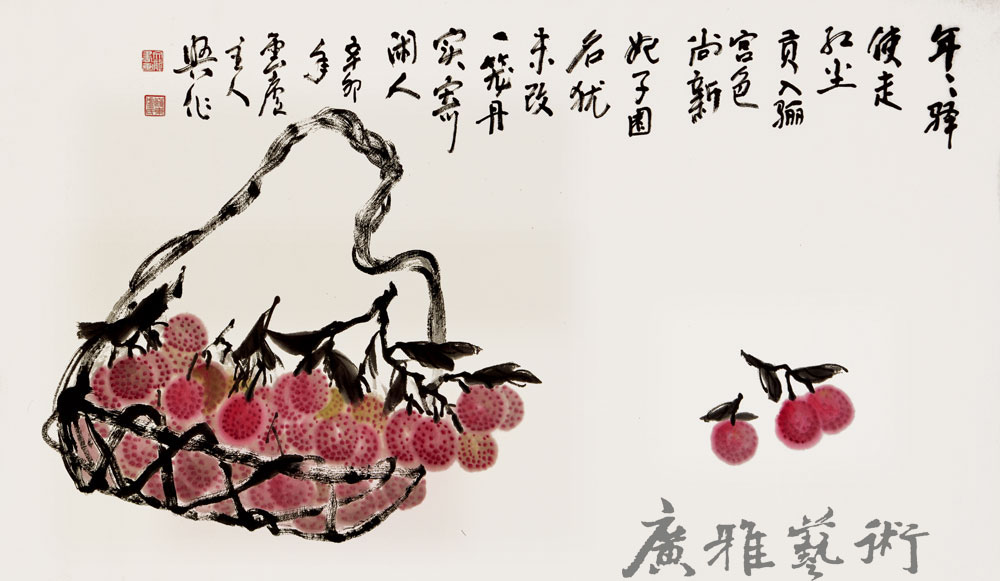 年々驿
使走
红尘
贡入骊
宫色
尚新
妃子園
名犹
未改
一笼丹
实寄
闲人
辛卯
年
雲廬
主人
興作
廣雅藝術